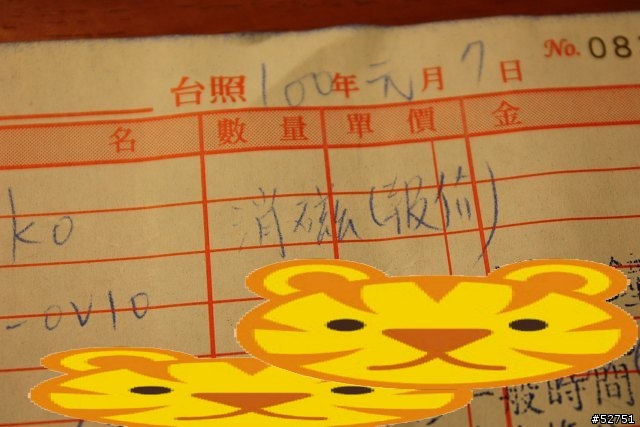 No. 081
台照 100年元月7日
名 數量 單價 金
ko 消磁(報價)
-OV10
一般時間
#52751